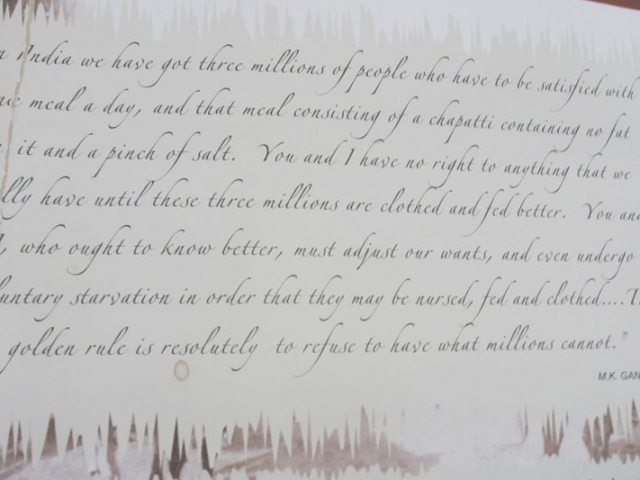 n India we have got three millions of people who have to be satisfied with
meal a day, and that meal consisting of a chapatti containing no fat
it and a pinch of salt. You and I have no right to anything that we
lly have until these three millions are clothed and fed better. You and
I, who ought to know better, must adjust our wants, and even undergo
luntary starvation in order that they may be nursed, fed and clothed....T
golden rule is resolutely to refuse to have what millions cannot."
M.K. GAN